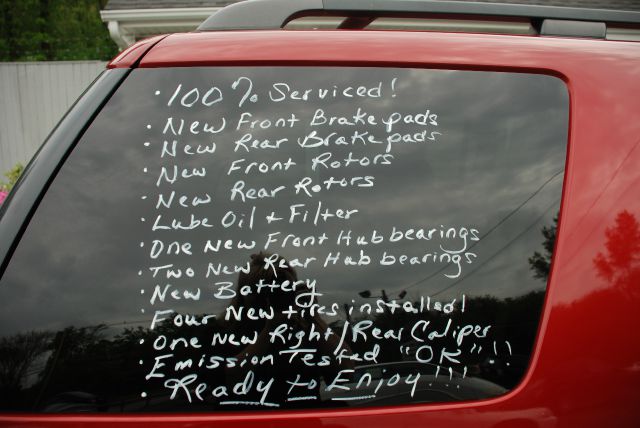 · 100% Serviced!
· New Front Brakepads
· New Rear Brakepads
· New Front Rotors
· New Rear Rotors
· Lube Oil + Filter
· One New Front Hub bearings
· Two New Rear Hub bearings
· New Battery
· Four New tires installed!
· One New Right/Rear Caliper
· Emission Tested "OK"!!
· Ready to Enjoy!!!